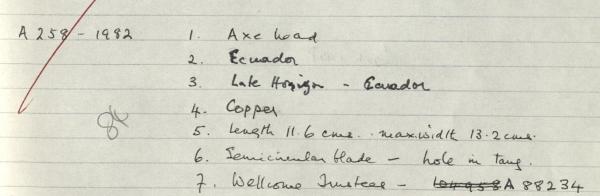 A 258 - 1982 1. Axe head
2. Ecuador
3. Late Horizon - Ecuador
4. Copper
5. Length 11.6 cms. max.width 13.2 cms.
6. Semicircular blade - hole in tang.
7. Wellcome Trustees - A 88234